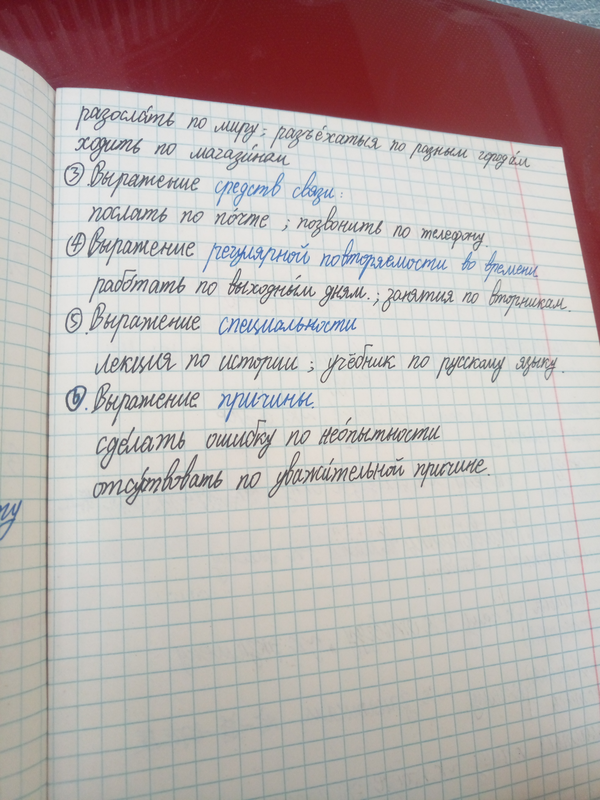 разосла́ть по миру; разъе́хаться по разным города́м
ходить по магази́нам
③ Выражение средств связи:
послать по по́чте ; позвонить по телефону
④ Выражение регулярной повторяемости во времени
рабо́тать по выходны́м дням. ; занятия по вторникам.
⑤. Выражение специальности
лекция по истории ; уче́бник по русскому языку.
⑥. Выражение причины.
сде́лать ошибку по нео́пытности
отсу́тствовать по уважи́тельной причине.